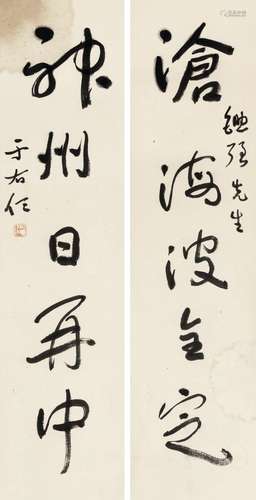 先生
滄海波全定
神州日再中
于右任